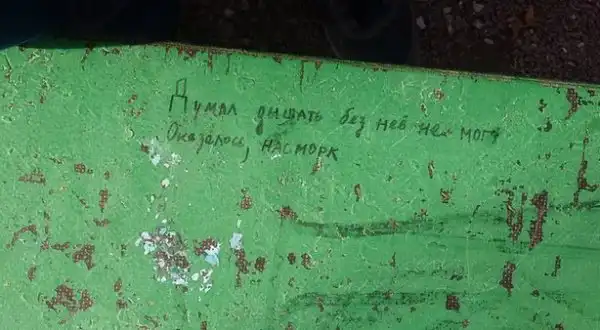 Думал дышать без неё не могу
Оказалось, насморк